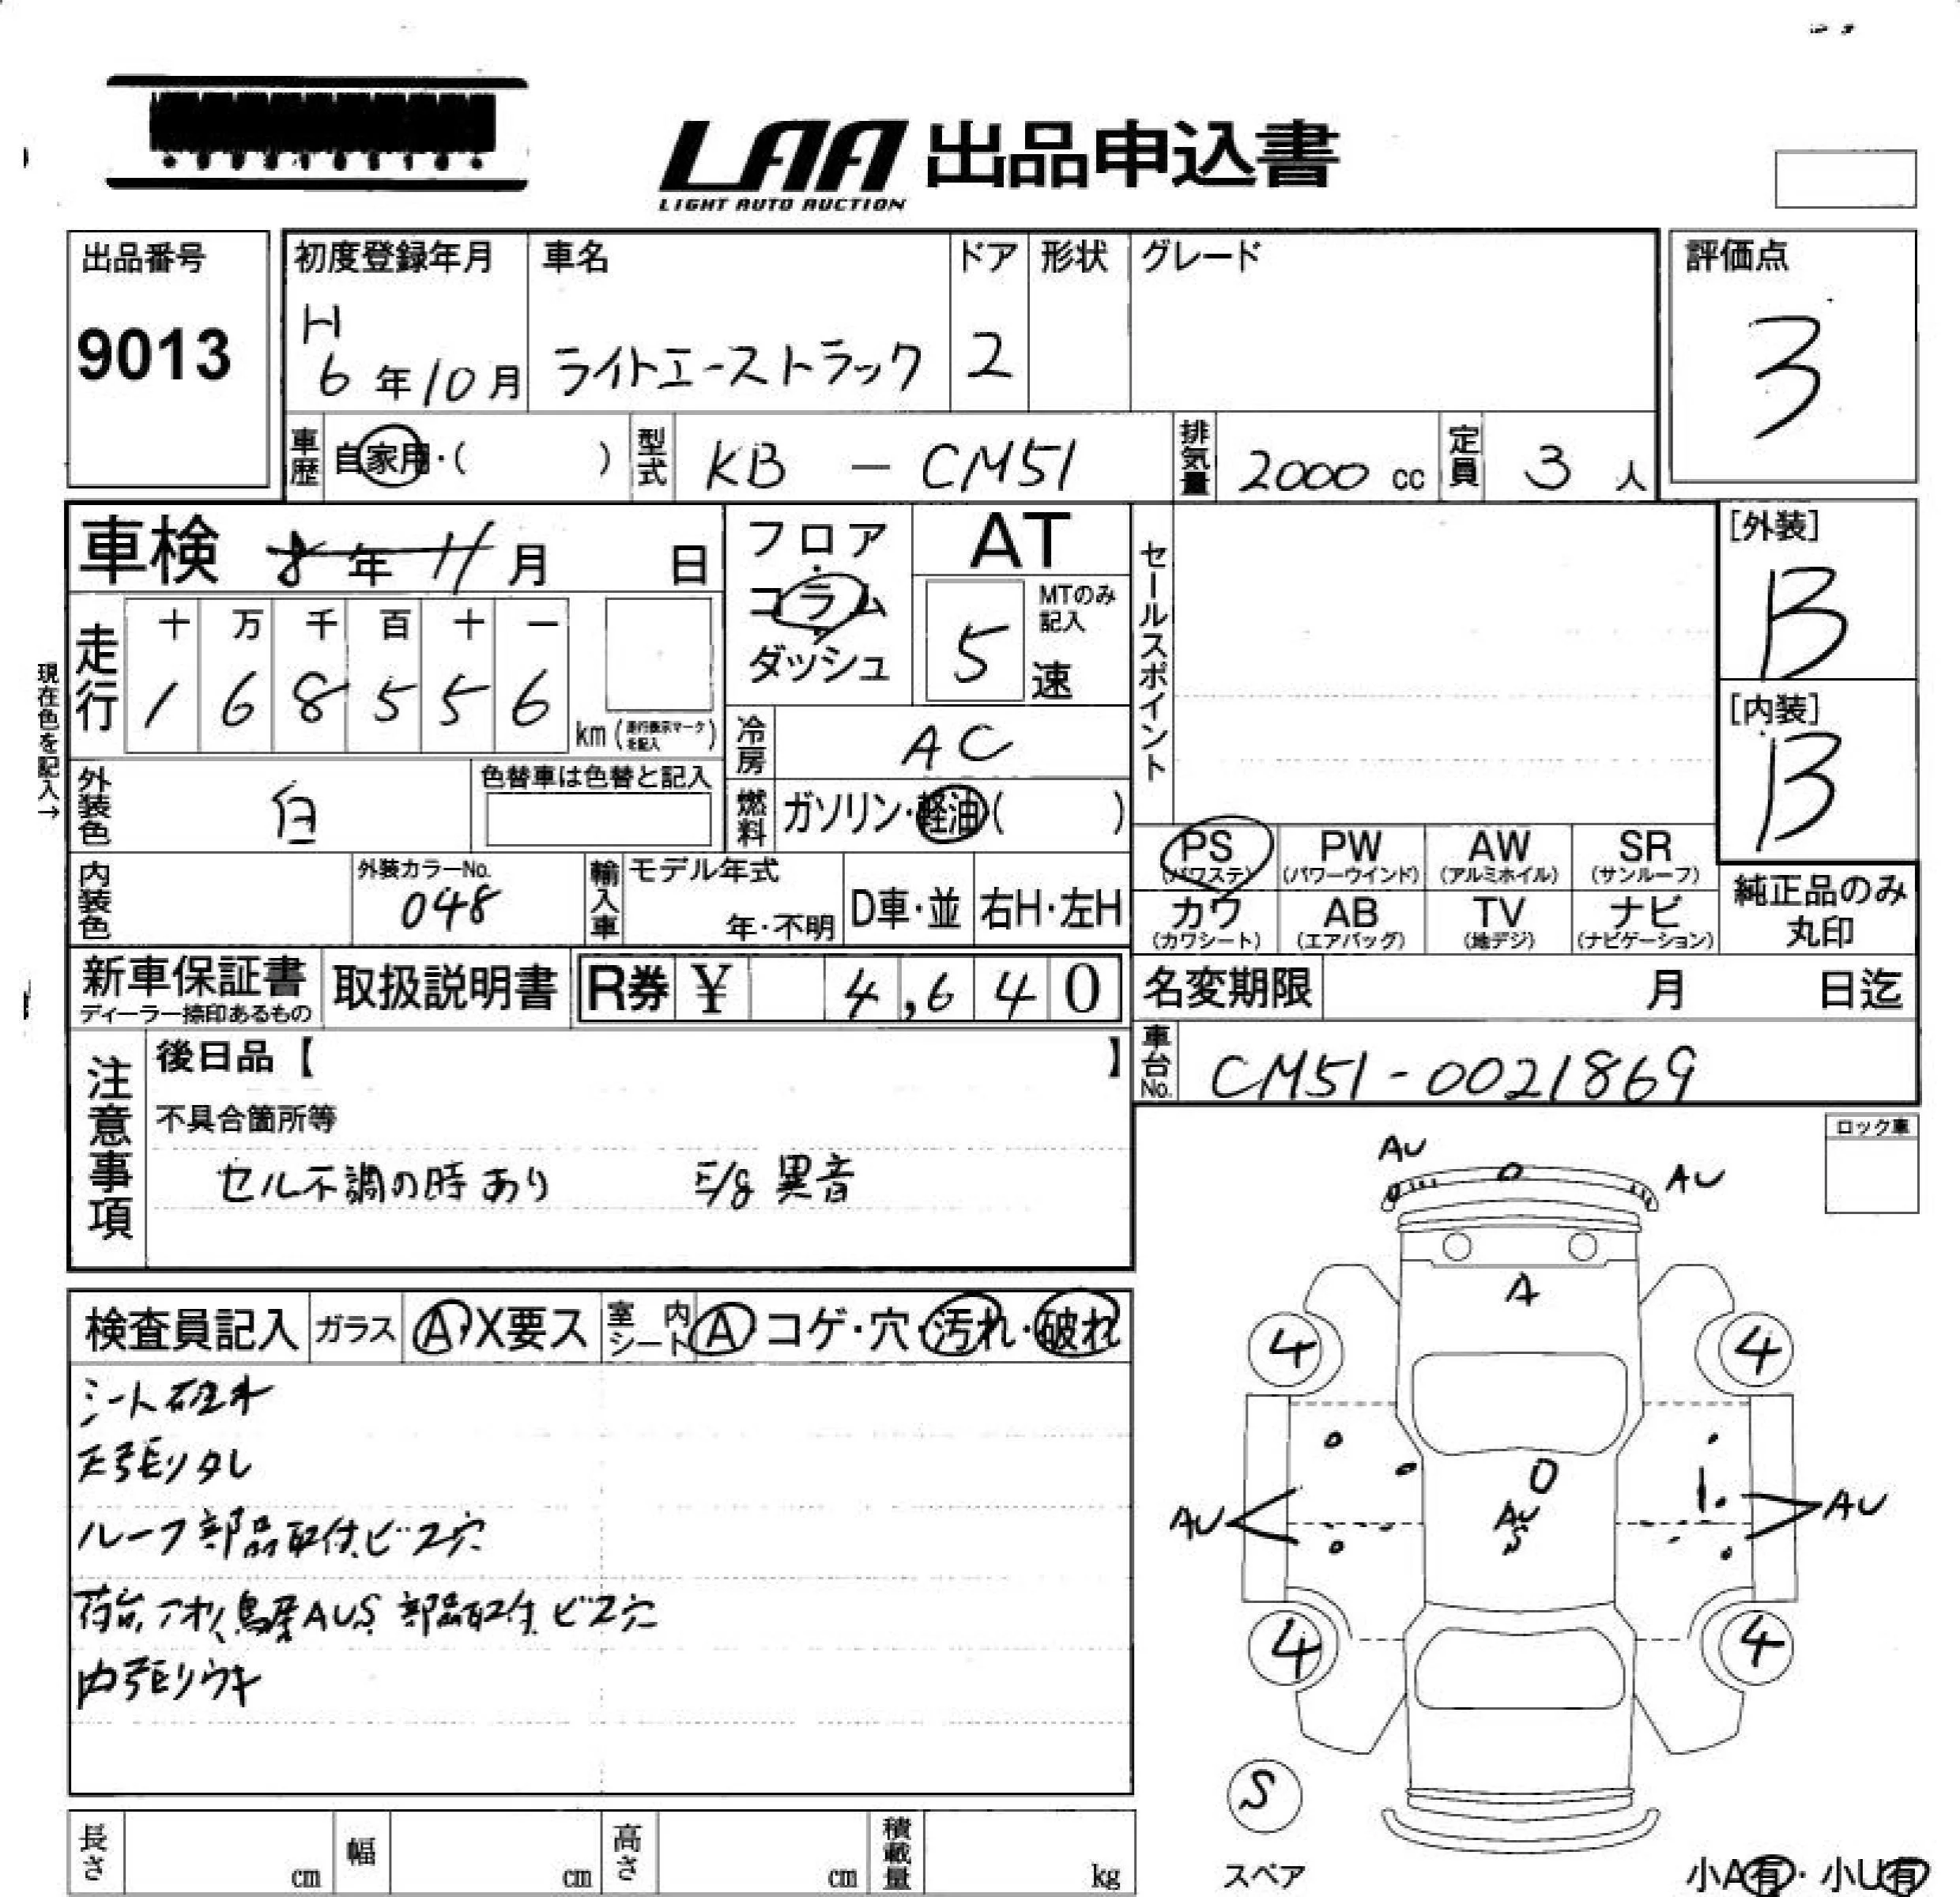 LAA 出品申込書
LIGHT AUTO AUCTION
出品番号
9013
初度登録年月
H
6年10月
車名
ライトエーストラック
ドア
2
形状
グレード
評価点
3
車歴
自家用・( )
型式
KB - CM51
排気量
2000 cc
定員
3 人
車検 8年11月 日
走行
十 万 千 百 十 一
1 6 8 5 5 6
km(走行表示マークを記入)
現在色を記入→
フロア
コラム
ダッシュ
AT
MTのみ記入
5 速
冷房
AC
セールスポイント
[外装]
B
[内装]
B
外装色
白
色替車は色替と記入
燃料
ガソリン・軽油( )
内装色
外装カラーNo.
048
輸入車
モデル年式
年・不明
D車・並
右H・左H
PS
(パワステ)
PW
(パワーウインド)
AW
(アルミホイル)
SR
(サンルーフ)
カワ
(カワシート)
AB
(エアバッグ)
TV
(地デジ)
ナビ
(ナビゲーション)
純正品のみ
丸印
新車保証書
ディーラー捺印あるもの
取扱説明書
R券 ¥ 4,640
名変期限 月 日迄
車台No.
CM51-0021869
注意事項
後日品【 】
不具合箇所等
セル不調の時あり E/g 異音
ロック車
検査員記入
ガラス
A・X要ス
室内シート
A・コゲ・穴・汚れ・破れ
シート破れ
天張りタレ
ルーフ部品取付ビス穴
荷台アオリ鳥居AUS 部品取付ビス穴
内張りウキ
AU
AU
A
4
4
AU
AU
S
AU
4
4
S
スペア
長さ cm
幅 cm
高さ cm
積載量 kg
小A有・小U有